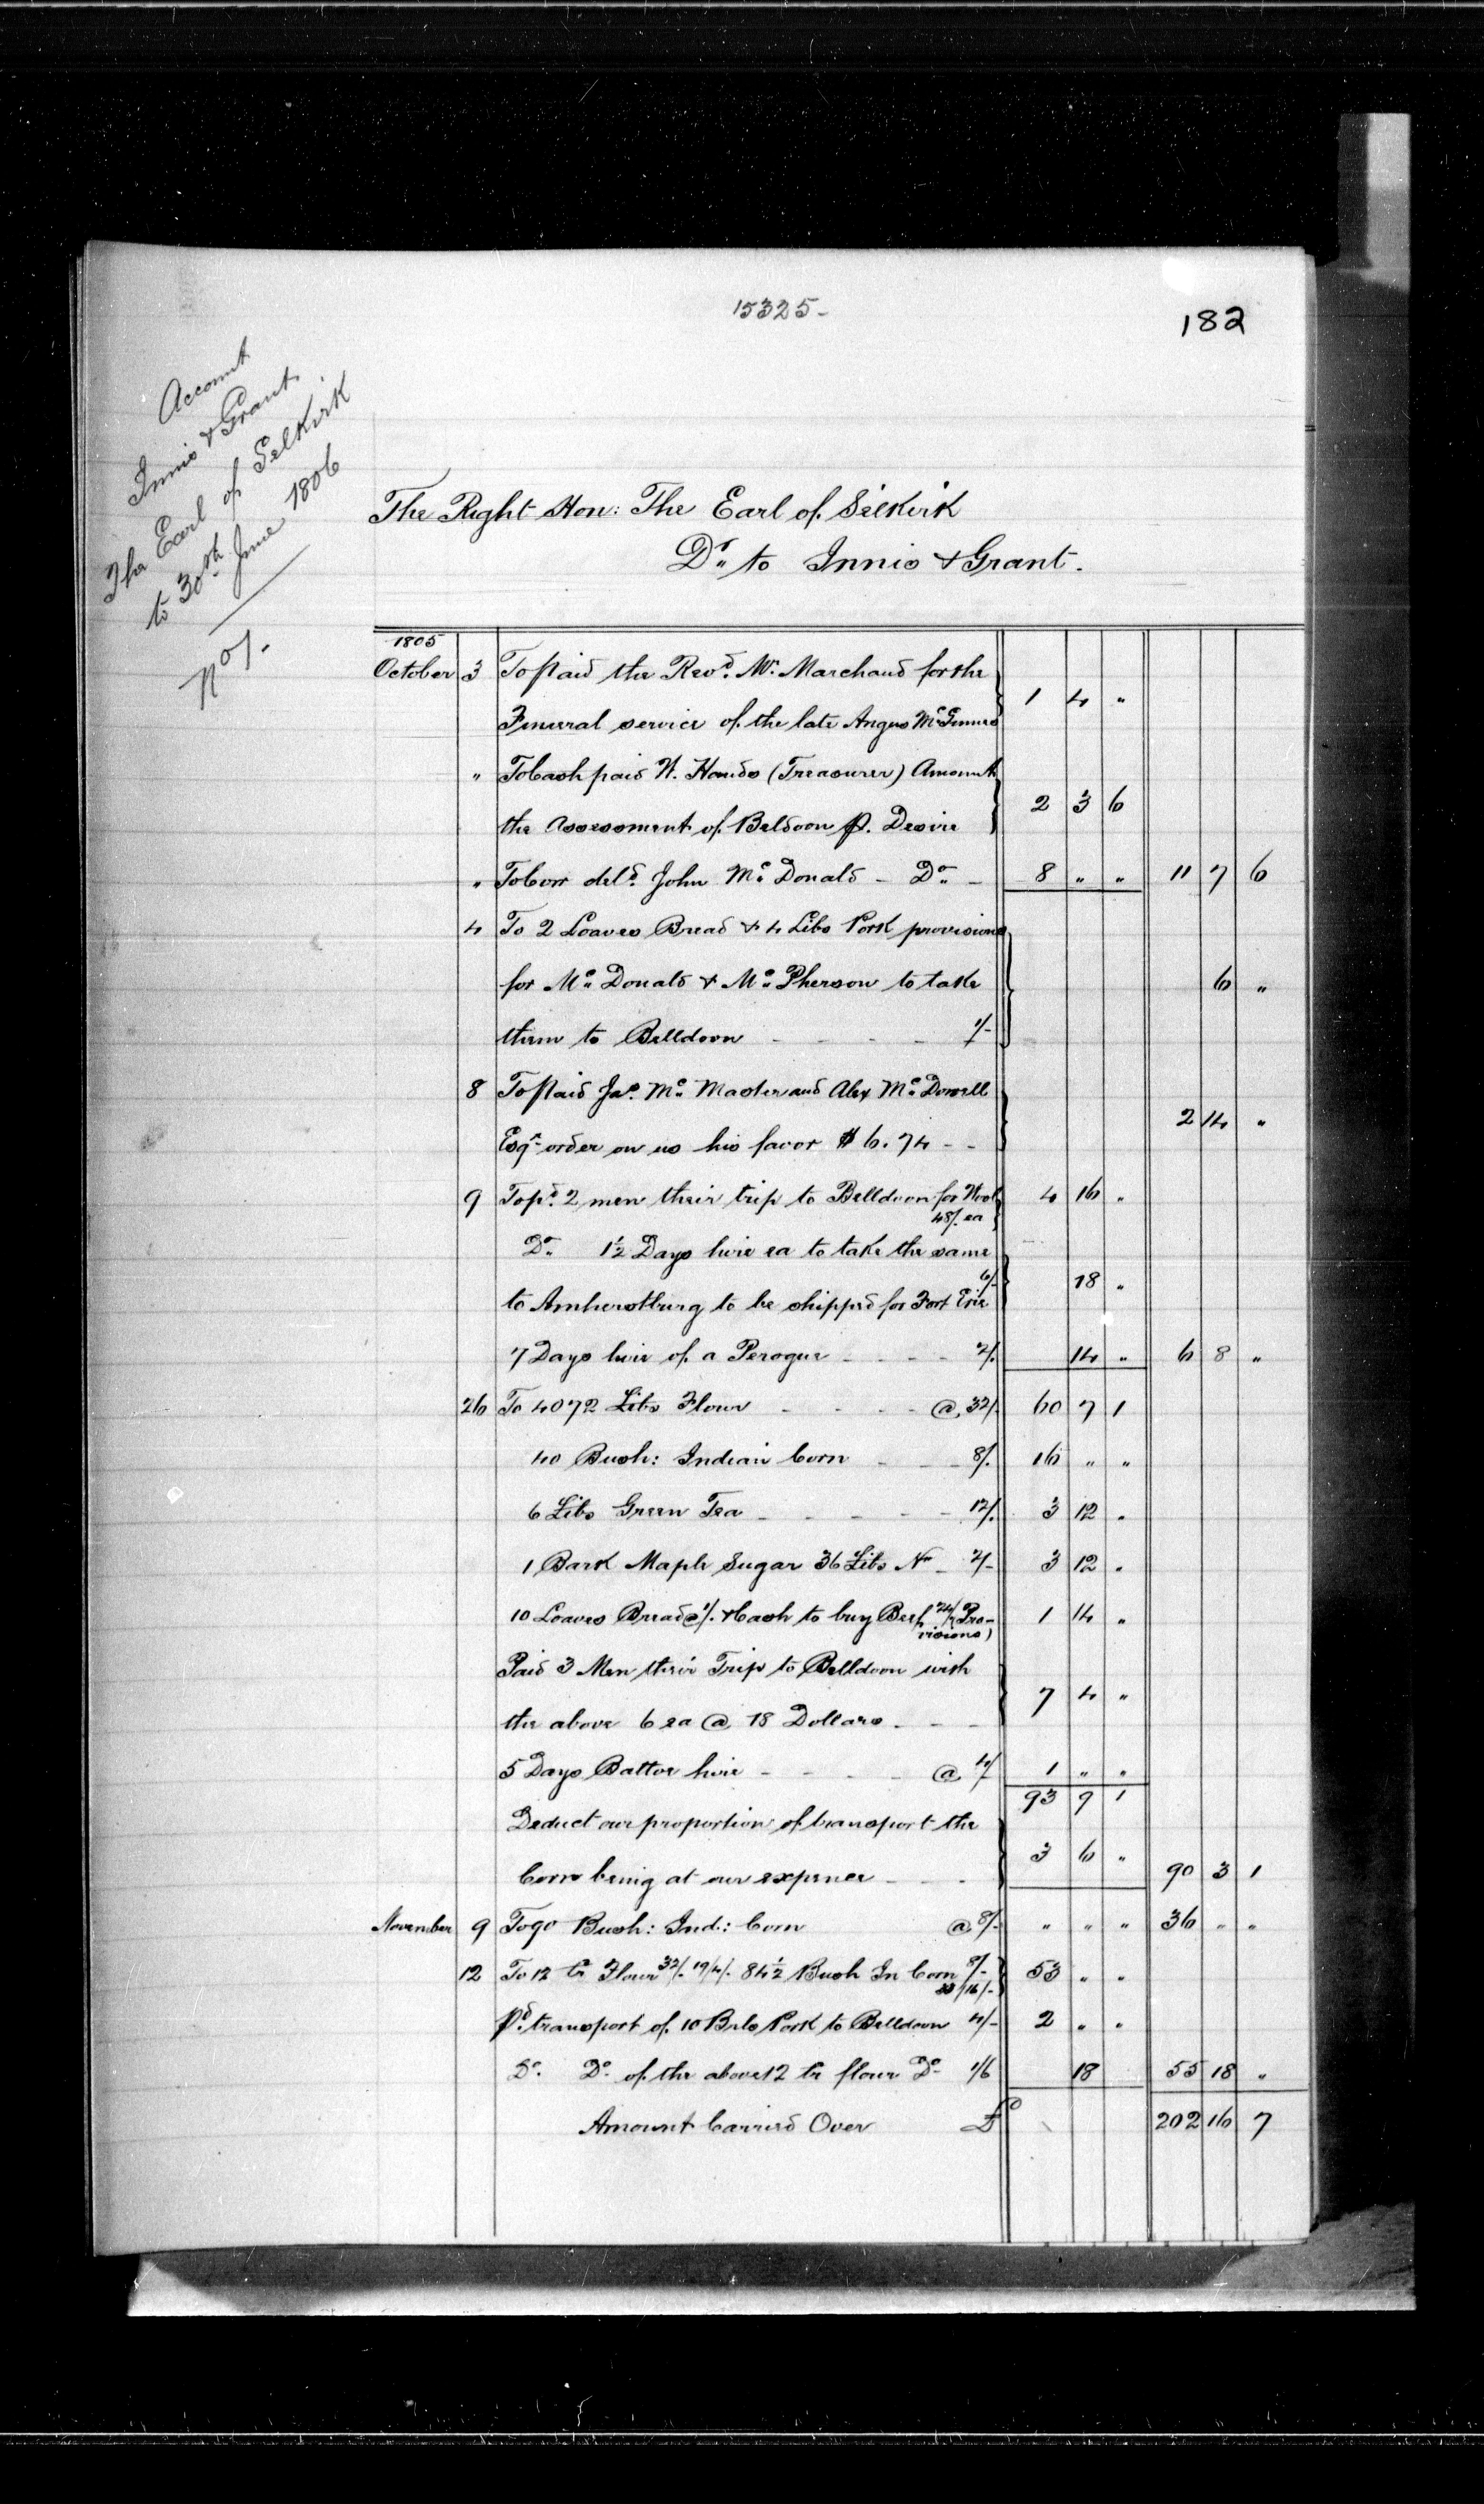 15325-
182
Account
Innis & Grant
The Earl of Selkirk
to 30th June 1806
No 1.
The Right Hon: The Earl of Selkirk
Dr. to Innis & Grant.
1805
October 3 To paid the Revd. Mr. Marchand for the
Funeral service of the late Angus McGinnis 1 4 "
" To Cash paid W. Hands (Treasurer) Amount
the Assessment of Beldoon p. Desire 2 3 6
" To Cow deld. John Mc Donald - Do. - 8 " " 11 7 6
4 To 2 Loaves Bread & 4 Libs Pork provisions
for Mc. Donald & Mc. Pherson to take
them to Belldoon - - - - 1/- 6 "
8 To paid Jas. Mc. Master and Alex Mc. Donell
Esqr. order on us his favor $ 6. 74 - - 2 14 "
9 To pd. 2 men their trip to Belldoon for Wool 4 16 "
48/. ea
Do. 1½ Days hire ea to take the same
6/-
to Amherstburg to be shipped for Fort Erie 18 "
7 Days hire of a Perogue - - - - 2/. 14 " 6 8 "
26 To 4072 Libs Flour - - - - @ 32/. 60 7 1
40 Bush: Indian Corn - - - 8/. 16 " "
6 Libs Green Tea - - - - - 12/. 3 12 "
1 Bark Maple Sugar 36 Libs Nt - 2/- 3 12 "
10 Loaves Bread @ 1/. & Cash to buy Beef 24/ (Pro- 1 14 "
visions)
Paid 3 Men their Trip to Belldoon with
the above 6 ea @ 18 Dollars - - - 7 4 "
5 Days Battoe hire - - - - @ 4/ 1 " "
93 9 1
Deduct our proportion of transport the
Corn being at our expence - - - 3 6 " 90 3 1
November 9 To 90 Bush: Ind: Corn @ 8/- " " " 36 " "
12 To 12 Flour 32/. 19/4/. 84½ Bush In Corn 8/- 53 " "
33/16/-
pd. transport of 10 Brls Pork to Belldoon 4/- 2 " "
Do. Do. of the above 12 flour Do. 1/6 18 55 18 "
Amount Carried Over £ 202 16 7